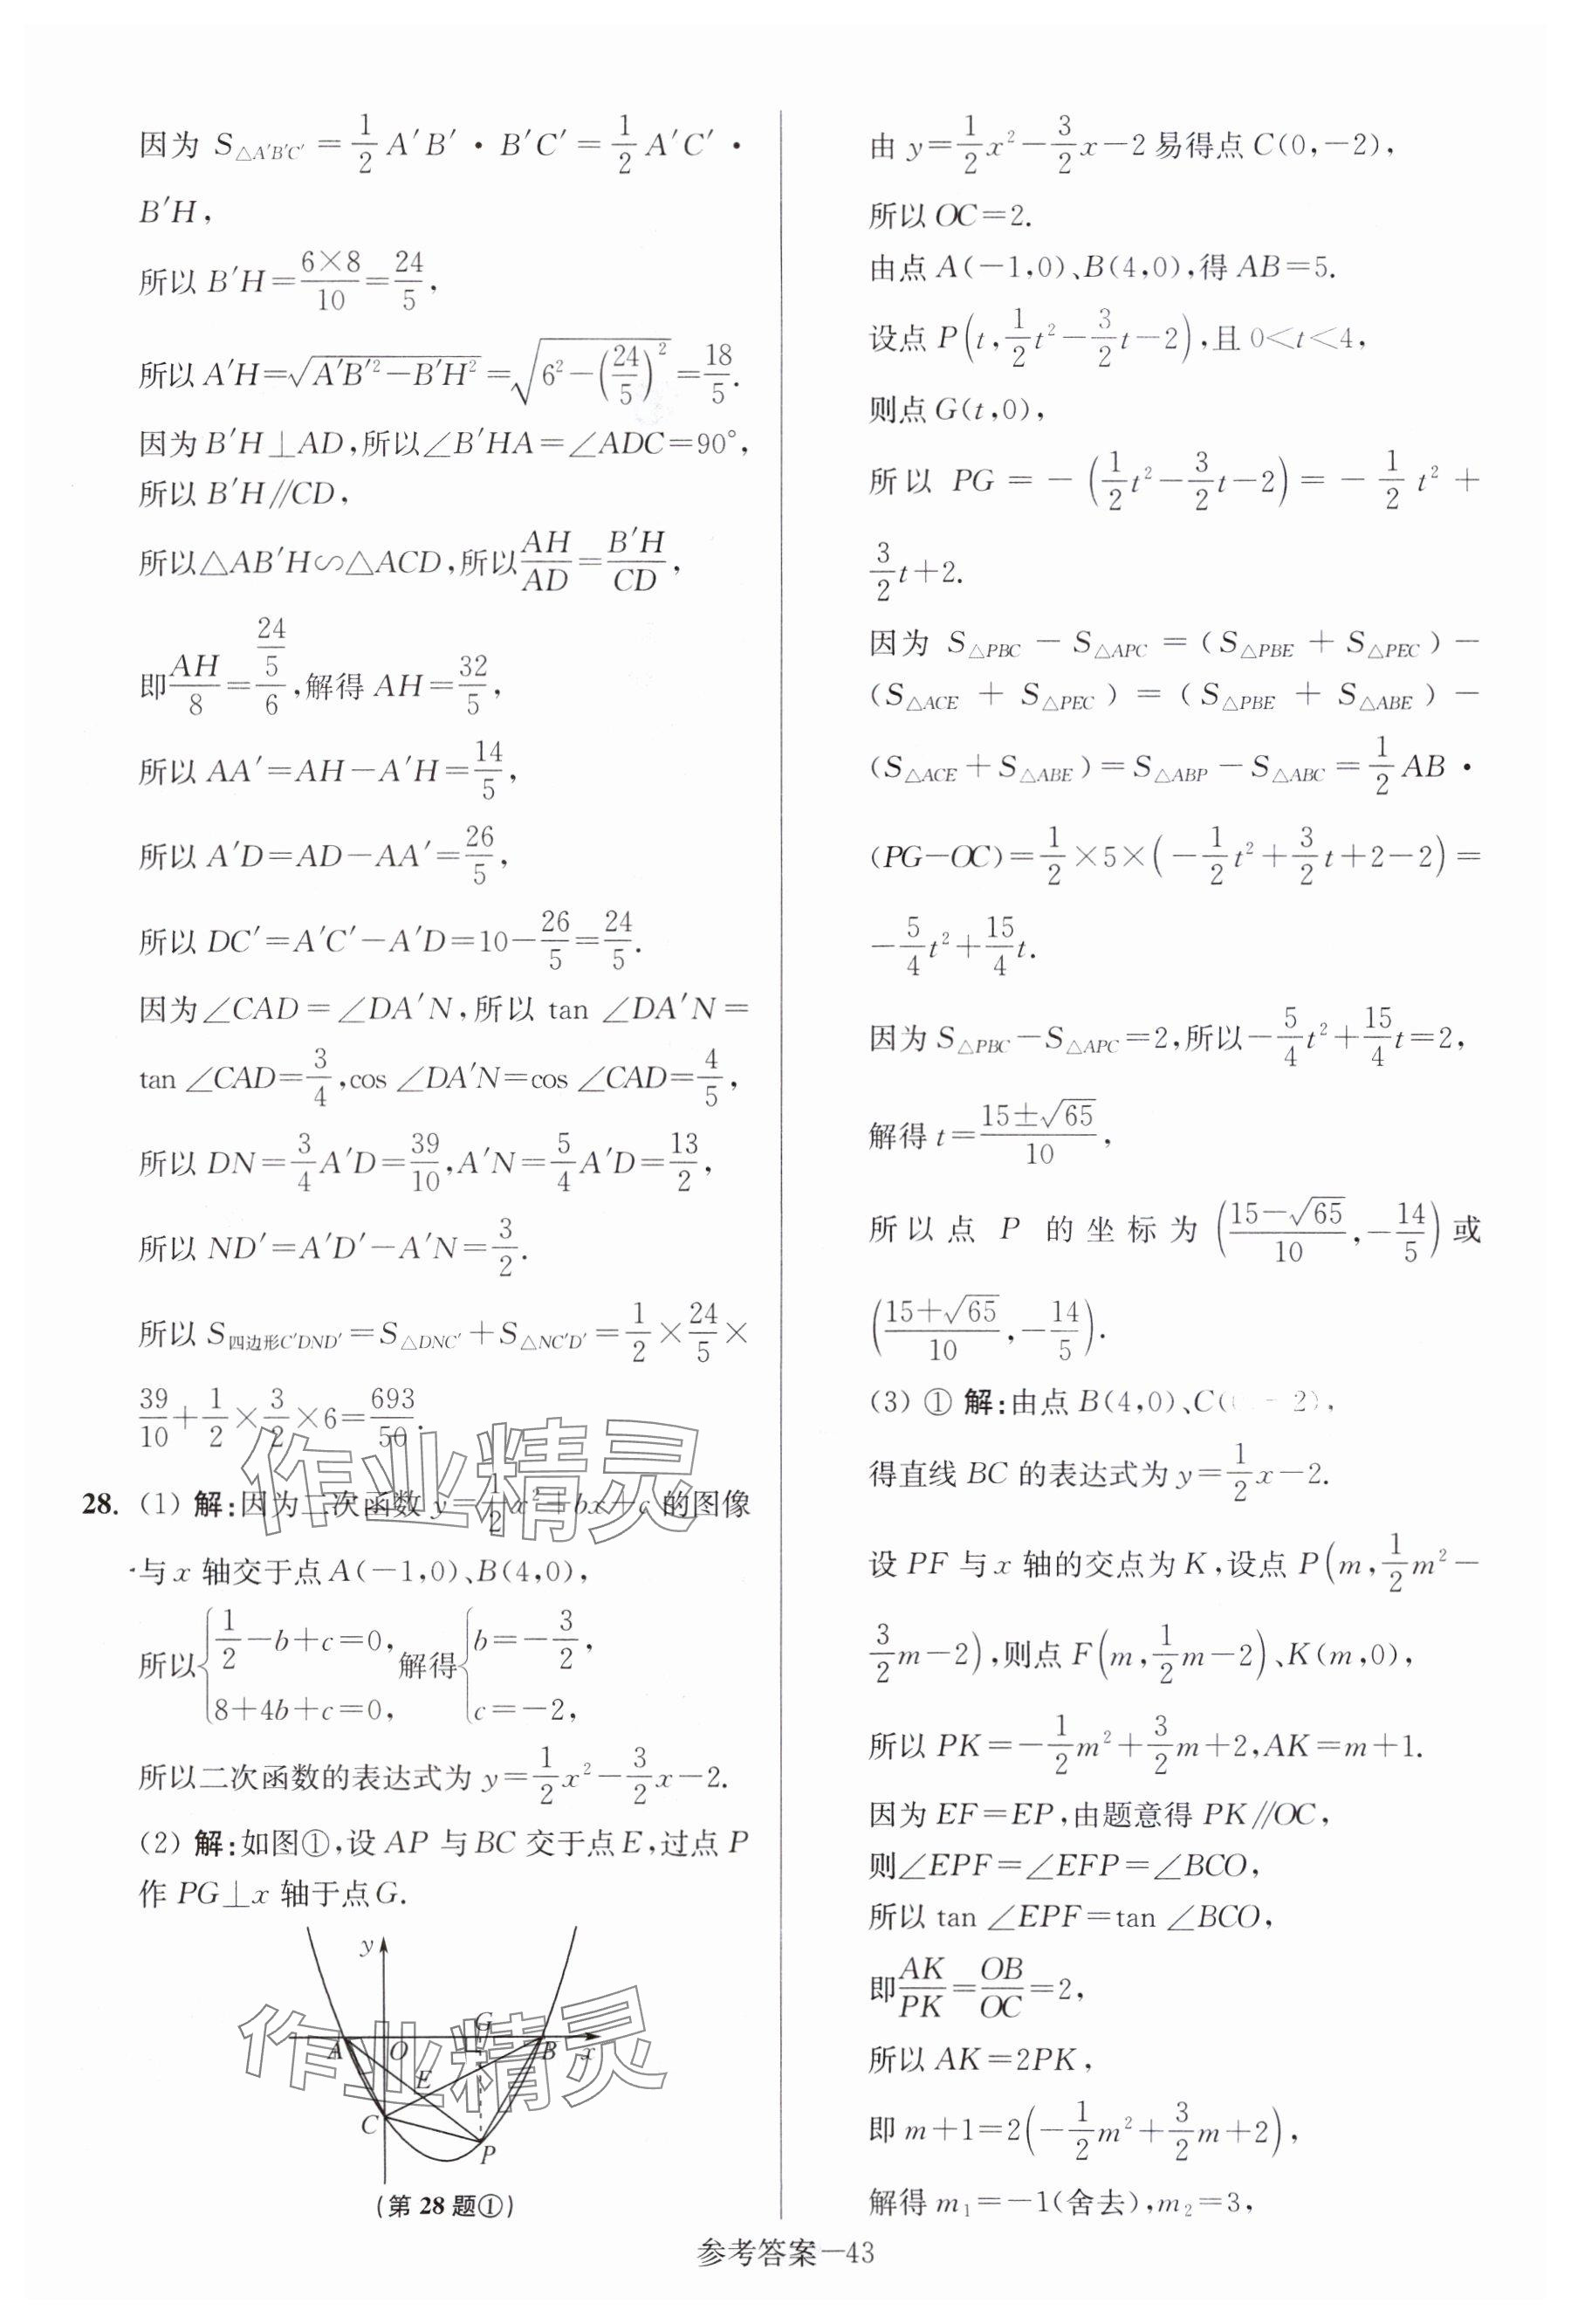 因为 S△A′B′C′ = 1/2 A′B′ · B′C′ = 1/2 A′C′ ·
B′H,
所以 B′H=(6×8)/10=24/5,
所以 A′H=√(A′B′²−B′H²)=√(6²−(24/5)²)=18/5.
因为 B′H⊥AD,所以∠B′HA=∠ADC=90°,
所以 B′H∥CD,
所以△AB′H∽△ACD,所以AH/AD=B′H/CD,
即AH/8=(24/5)/6,解得 AH=32/5,
所以 AA′=AH−A′H=14/5,
所以 A′D=AD−AA′=26/5,
所以 DC′=A′C′−A′D=10−26/5=24/5.
因为∠CAD=∠DA′N,所以 tan ∠DA′N=
tan ∠CAD=3/4,cos ∠DA′N=cos ∠CAD=4/5,
所以 DN=3/4A′D=39/10,A′N=5/4A′D=13/2,
所以 ND′=A′D′−A′N=3/2.
所以 S四边形C′DND′=S△DNC′+S△NC′D′=1/2×24/5×
39/10+1/2×3/2×6=693/50.
28. (1) 解:因为二次函数 y=1/2x²+bx+c 的图像
与 x 轴交于点 A(−1,0)、B(4,0),
所以{1/2−b+c=0, 8+4b+c=0, 解得{b=−3/2, c=−2,
所以二次函数的表达式为 y=1/2x²−3/2x−2.
(2) 解:如图①,设 AP 与 BC 交于点 E,过点 P
作 PG⊥x 轴于点 G.
y
G
A O B x
E
C
P
(第 28 题①)
由 y=1/2x²−3/2x−2 易得点 C(0,−2),
所以 OC=2.
由点 A(−1,0)、B(4,0),得 AB=5.
设点 P(t,1/2t²−3/2t−2),且 0<t<4,
则点 G(t,0),
所以 PG = −(1/2t²−3/2t−2) = −1/2 t² +
3/2t+2.
因为 S△PBC − S△APC = (S△PBE + S△PEC) −
(S△ACE + S△PEC) = (S△PBE + S△ABE) −
(S△ACE+S△ABE)=S△ABP−S△ABC=1/2 AB ·
(PG−OC)=1/2×5×(−1/2t²+3/2t+2−2)=
−5/4t²+15/4t.
因为 S△PBC−S△APC=2,所以−5/4t²+15/4t=2,
解得 t=(15±√65)/10,
所以点 P 的坐标为((15−√65)/10,−14/5)或
((15+√65)/10,−14/5).
(3) ① 解:由点 B(4,0)、C( −2),
得直线 BC 的表达式为 y=1/2x−2.
设 PF 与 x 轴的交点为 K,设点 P(m,1/2m²−
3/2m−2),则点 F(m,1/2m−2)、K(m,0),
所以 PK=−1/2m²+3/2m+2,AK=m+1.
因为 EF=EP,由题意得 PK∥OC,
则∠EPF=∠EFP=∠BCO,
所以 tan ∠EPF=tan ∠BCO,
即AK/PK=OB/OC=2,
所以 AK=2PK,
即 m+1=2(−1/2m²+3/2m+2),
解得 m₁=−1(舍去),m₂=3,
参考答案—43
作业精灵
作业精灵